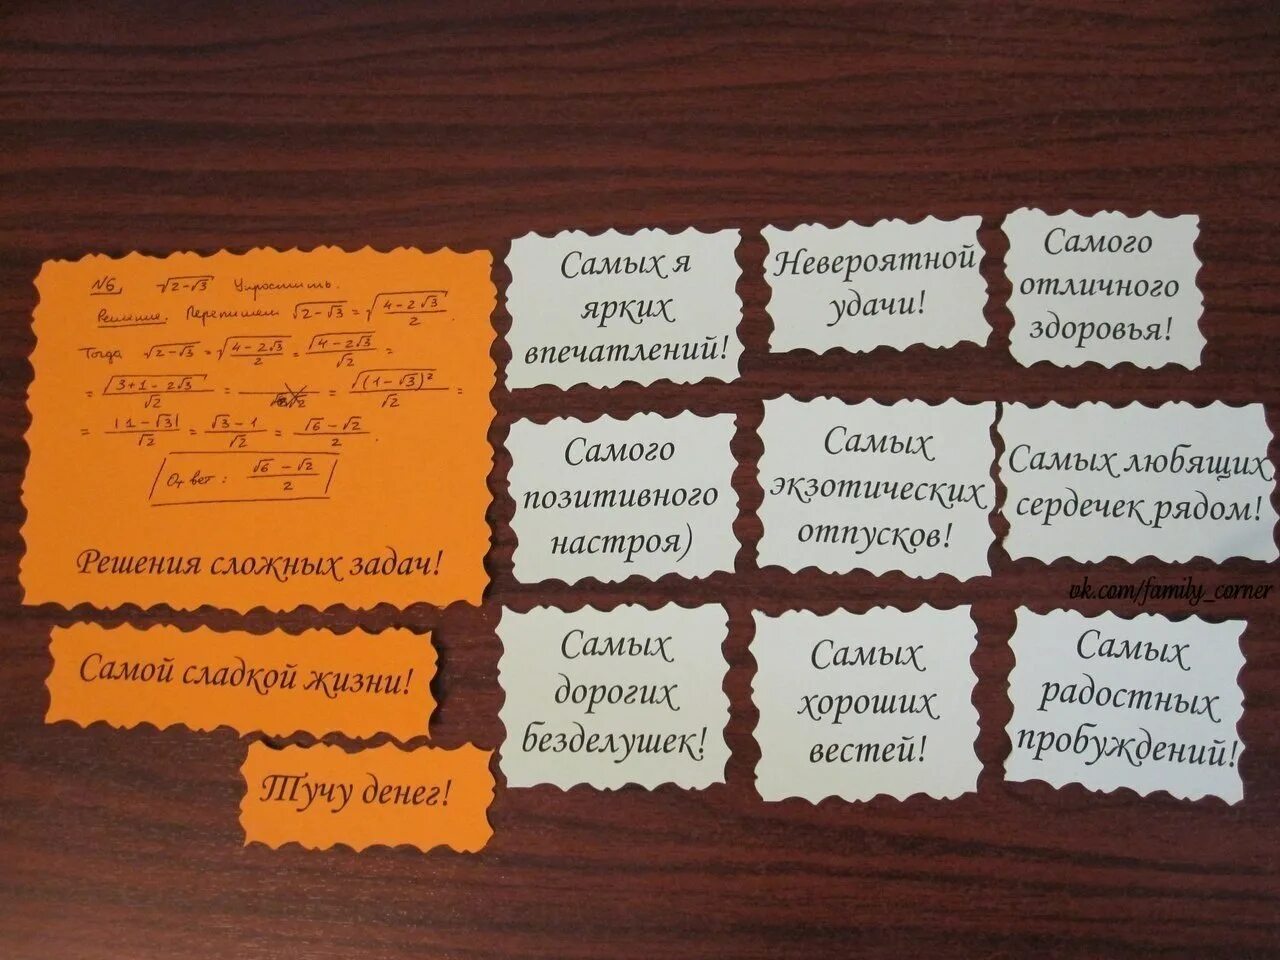 №6. √2-√3 Упростить.
Решение. Перепишем √2-√3 = √(4-2√3)/2.
Тогда √2-√3 = √(4-2√3)/2 = √4-2√3/√2 =
= √3+1-2√3/√2 = = √(1-√3)²/√2 =
= |1-√3|/√2 = √3-1/√2 = √6-√2/2.
Ответ: √6-√2/2
Решения сложных задач!
Самой сладкой жизни!
Тучу денег!
Самых я
ярких
впечатлений!
Невероятной
удачи!
Самого
отличного
здоровья!
Самого
позитивного
настроя)
Самых
экзотических
отпусков!
Самых любящих
сердечек рядом!
vk.com/family_corner
Самых
дорогих
безделушек!
Самых
хороших
вестей!
Самых
радостных
пробуждений!